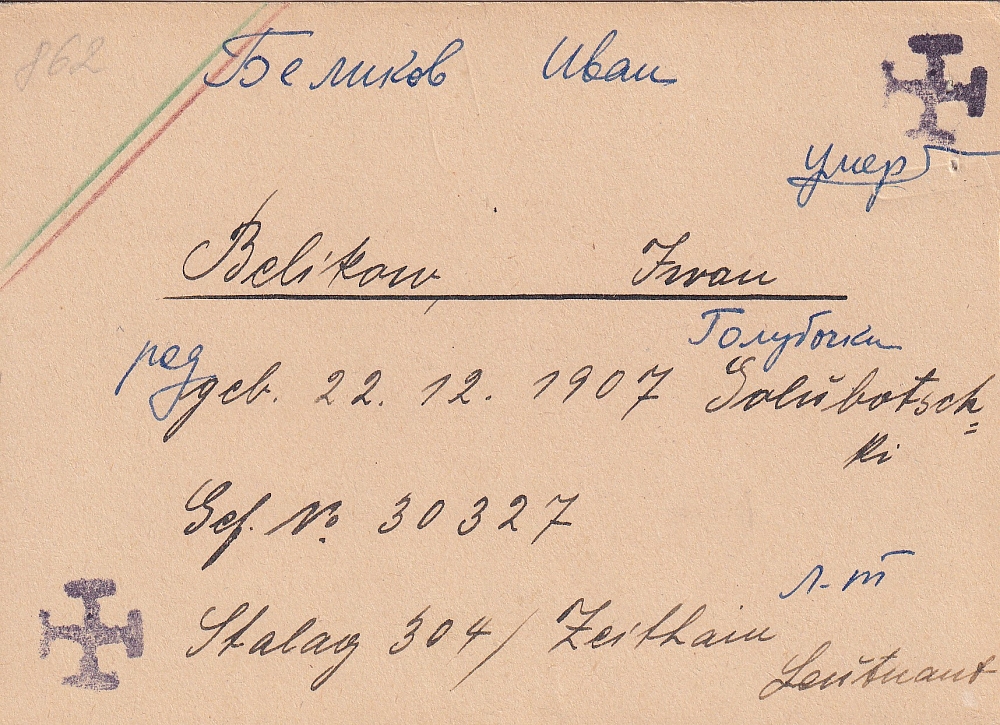 862
Беликов Иван
умер
Belikow, Iwan
Голубочки
род
geb. 22. 12. 1907 Golubotsch=
ki
Gef. No. 30327
л-т
Stalag 304/ Zeithain
Leutnant